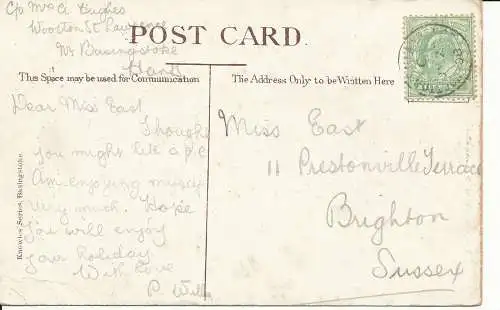 C/o Mrs A Hughes
Wootton St Lawrence
Nr Basingstoke
Hants
POST CARD.
This Space may be used for Communication
The Address Only to be Written Here
Dear Miss East
I thought
you might like a p.c.
Am enjoying myself
very much. Hope
you will enjoy
your holiday
With love
P.
Miss East
11 Prestonville Terrace
Brighton
Sussex
Knowles Series, Basingstoke.